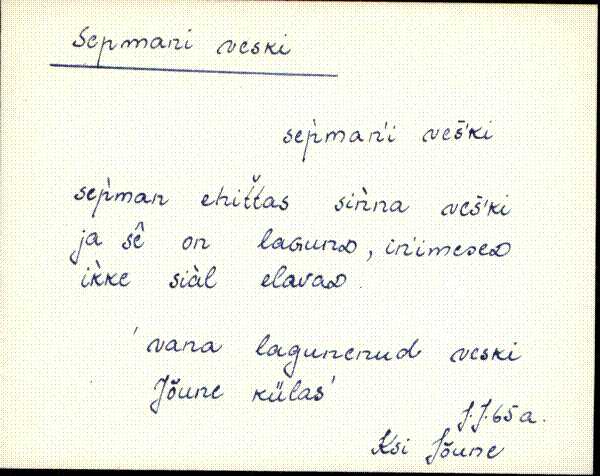 Sepmani veski
sep̀mańi veš́ki
sep̀man ehit̆tas siǹna veš́ki
ja sê on lagunᴅ, ińimeseᴅ
ik̀ke siàl elavaᴅ.
'vana lagunenud veski
Jõune külas'
J.J. 65 a.
Ksi Jõune